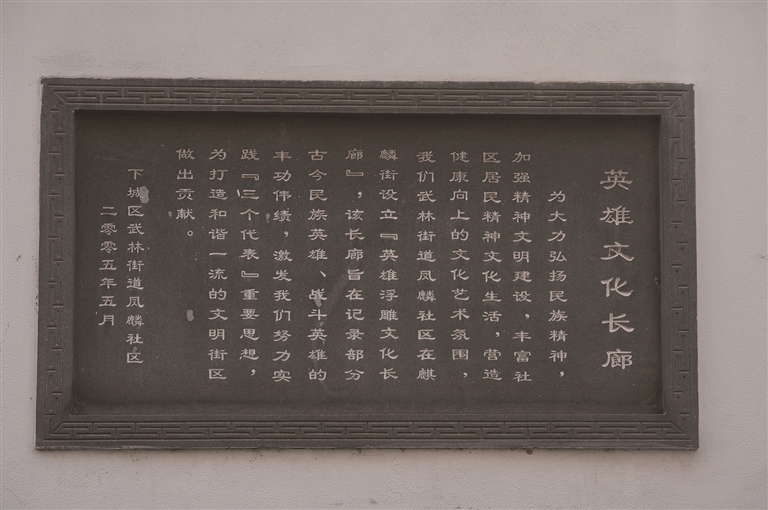 英雄文化长廊
为大力弘扬民族精神，
加强精神文明建设，丰富社
区居民精神文化生活，营造
健康向上的文化艺术氛围，
我们武林街道凤麟社区在麒
麟街设立『英雄浮雕文化长
廊』，该长廊旨在记录部分
古今民族英雄、战斗英雄的
丰功伟绩，激发我们努力实
践『三个代表』重要思想，
为打造和谐一流的文明街区
做出贡献。
下城区武林街道凤麟社区
二零零五年五月